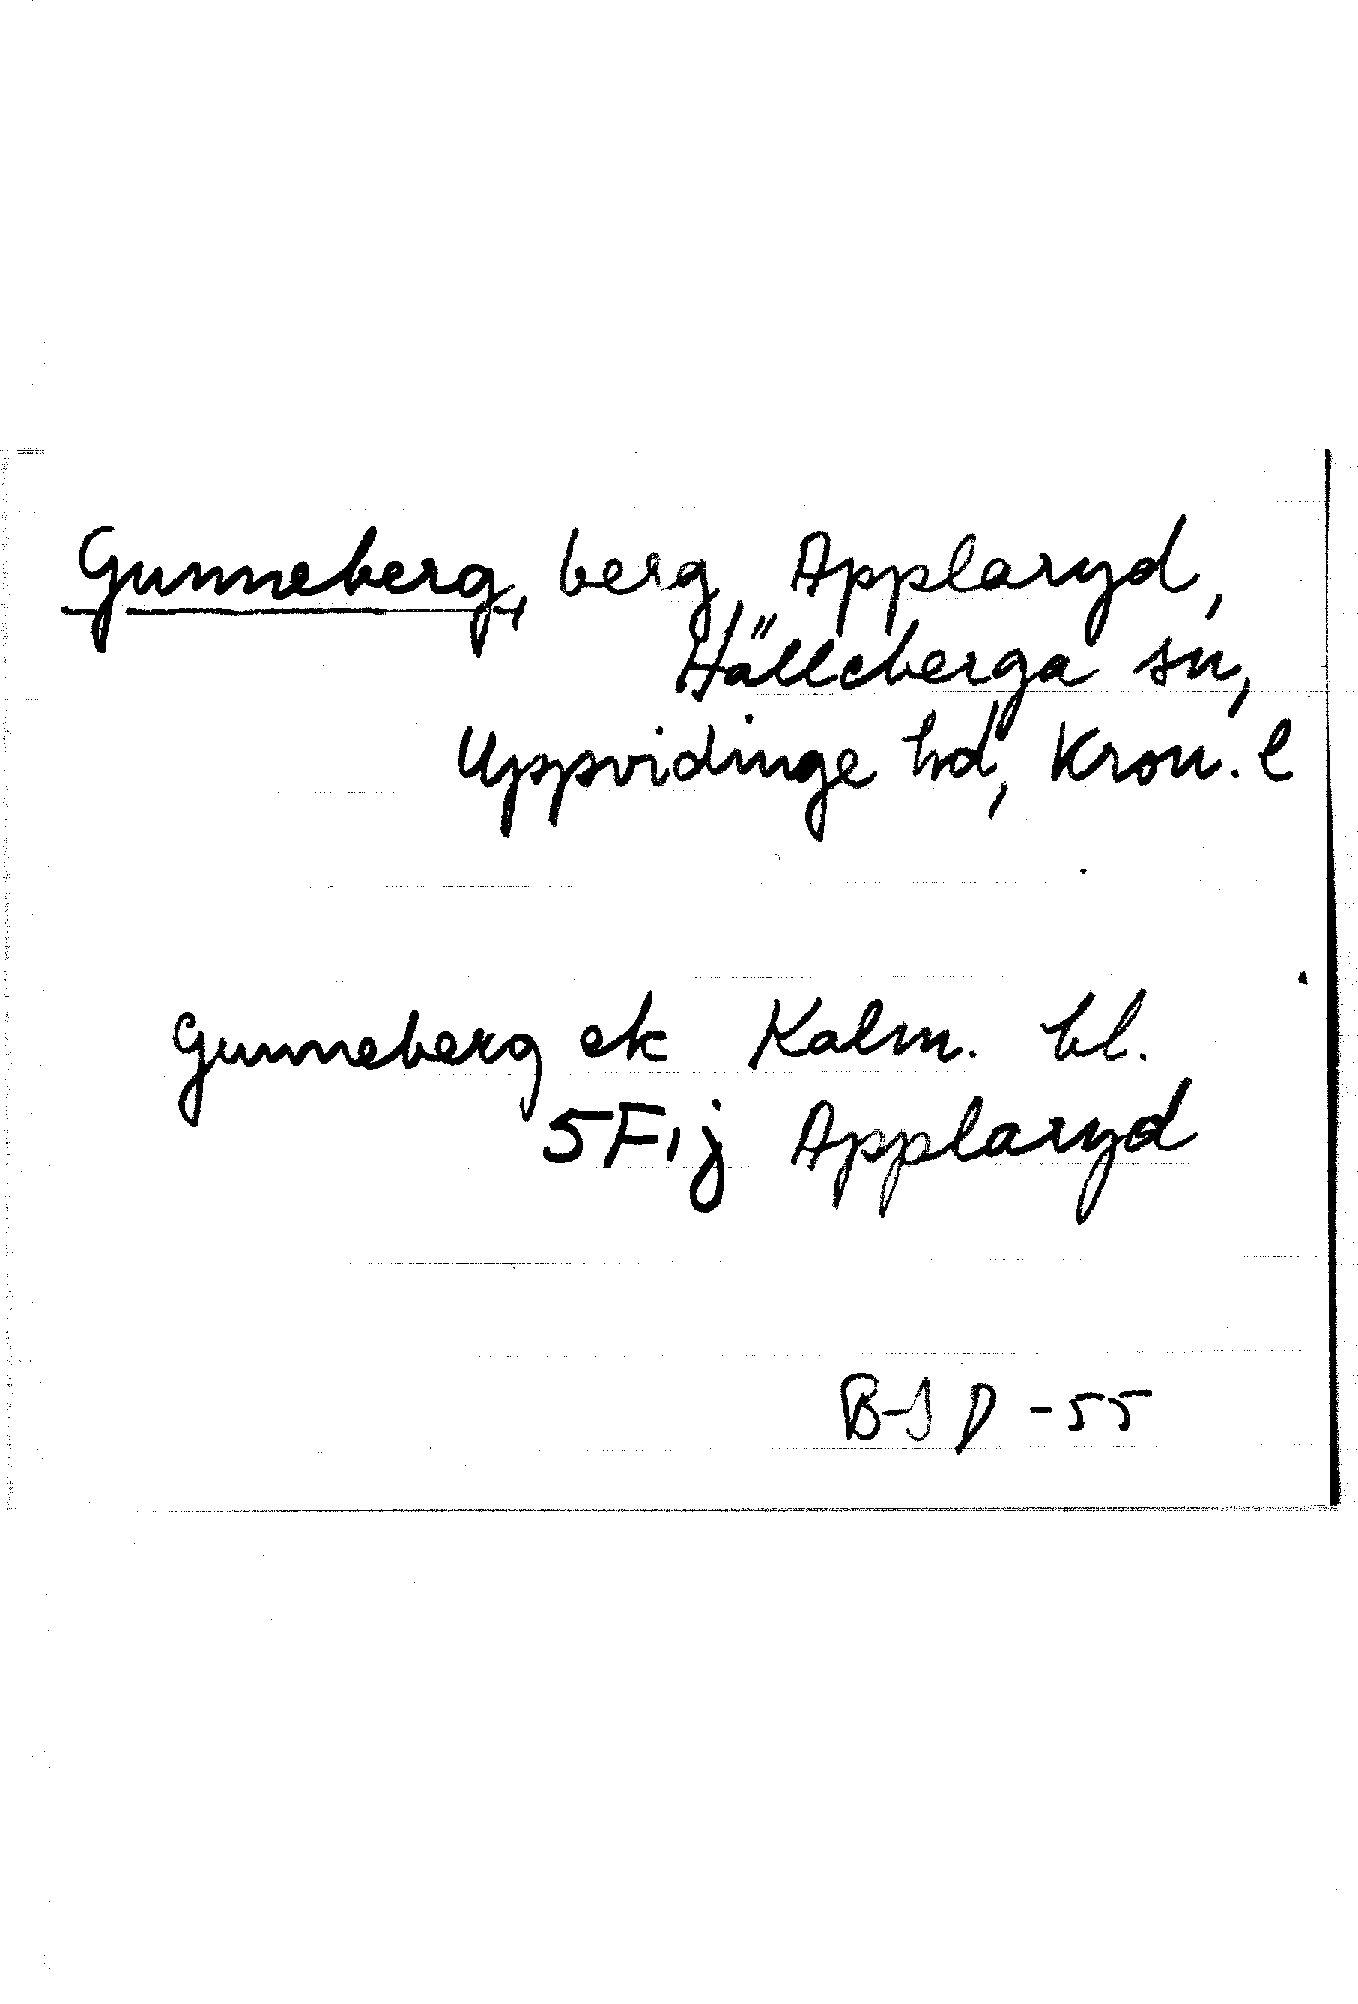 Gunneberg, berg, Applaryd,
Hälleberga sn,
Uppvidinge hd, Kron. l
Gunneberg ek Kalm. bl.
5F1j Applaryd
B-SD -55